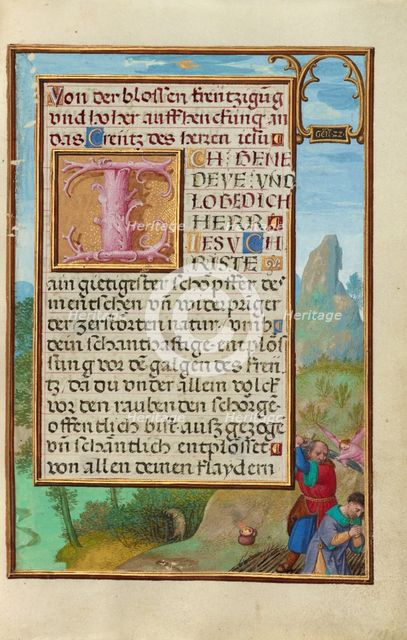 Von der blossen kreutzigung
und hoher auffhenckung an
das Creutz des herzen iesu
Gen · 22 ·
ICH BENE
DEYE VND
LOBE DICH
HERR
IESV CH
RISTE
ain gietigister schöpffer des
mentschen vn̄ widerpringer
der zerstorten natur · vmb
dein schanthafftige entplös
sung vor dē galgen des kreü
tz, da du vnder allem volck
vor den rauben den schörge
offentlich bist ausz gezogē
vn̄ schantlich entplösset
von allen deinen klaydern
Heritage
Images